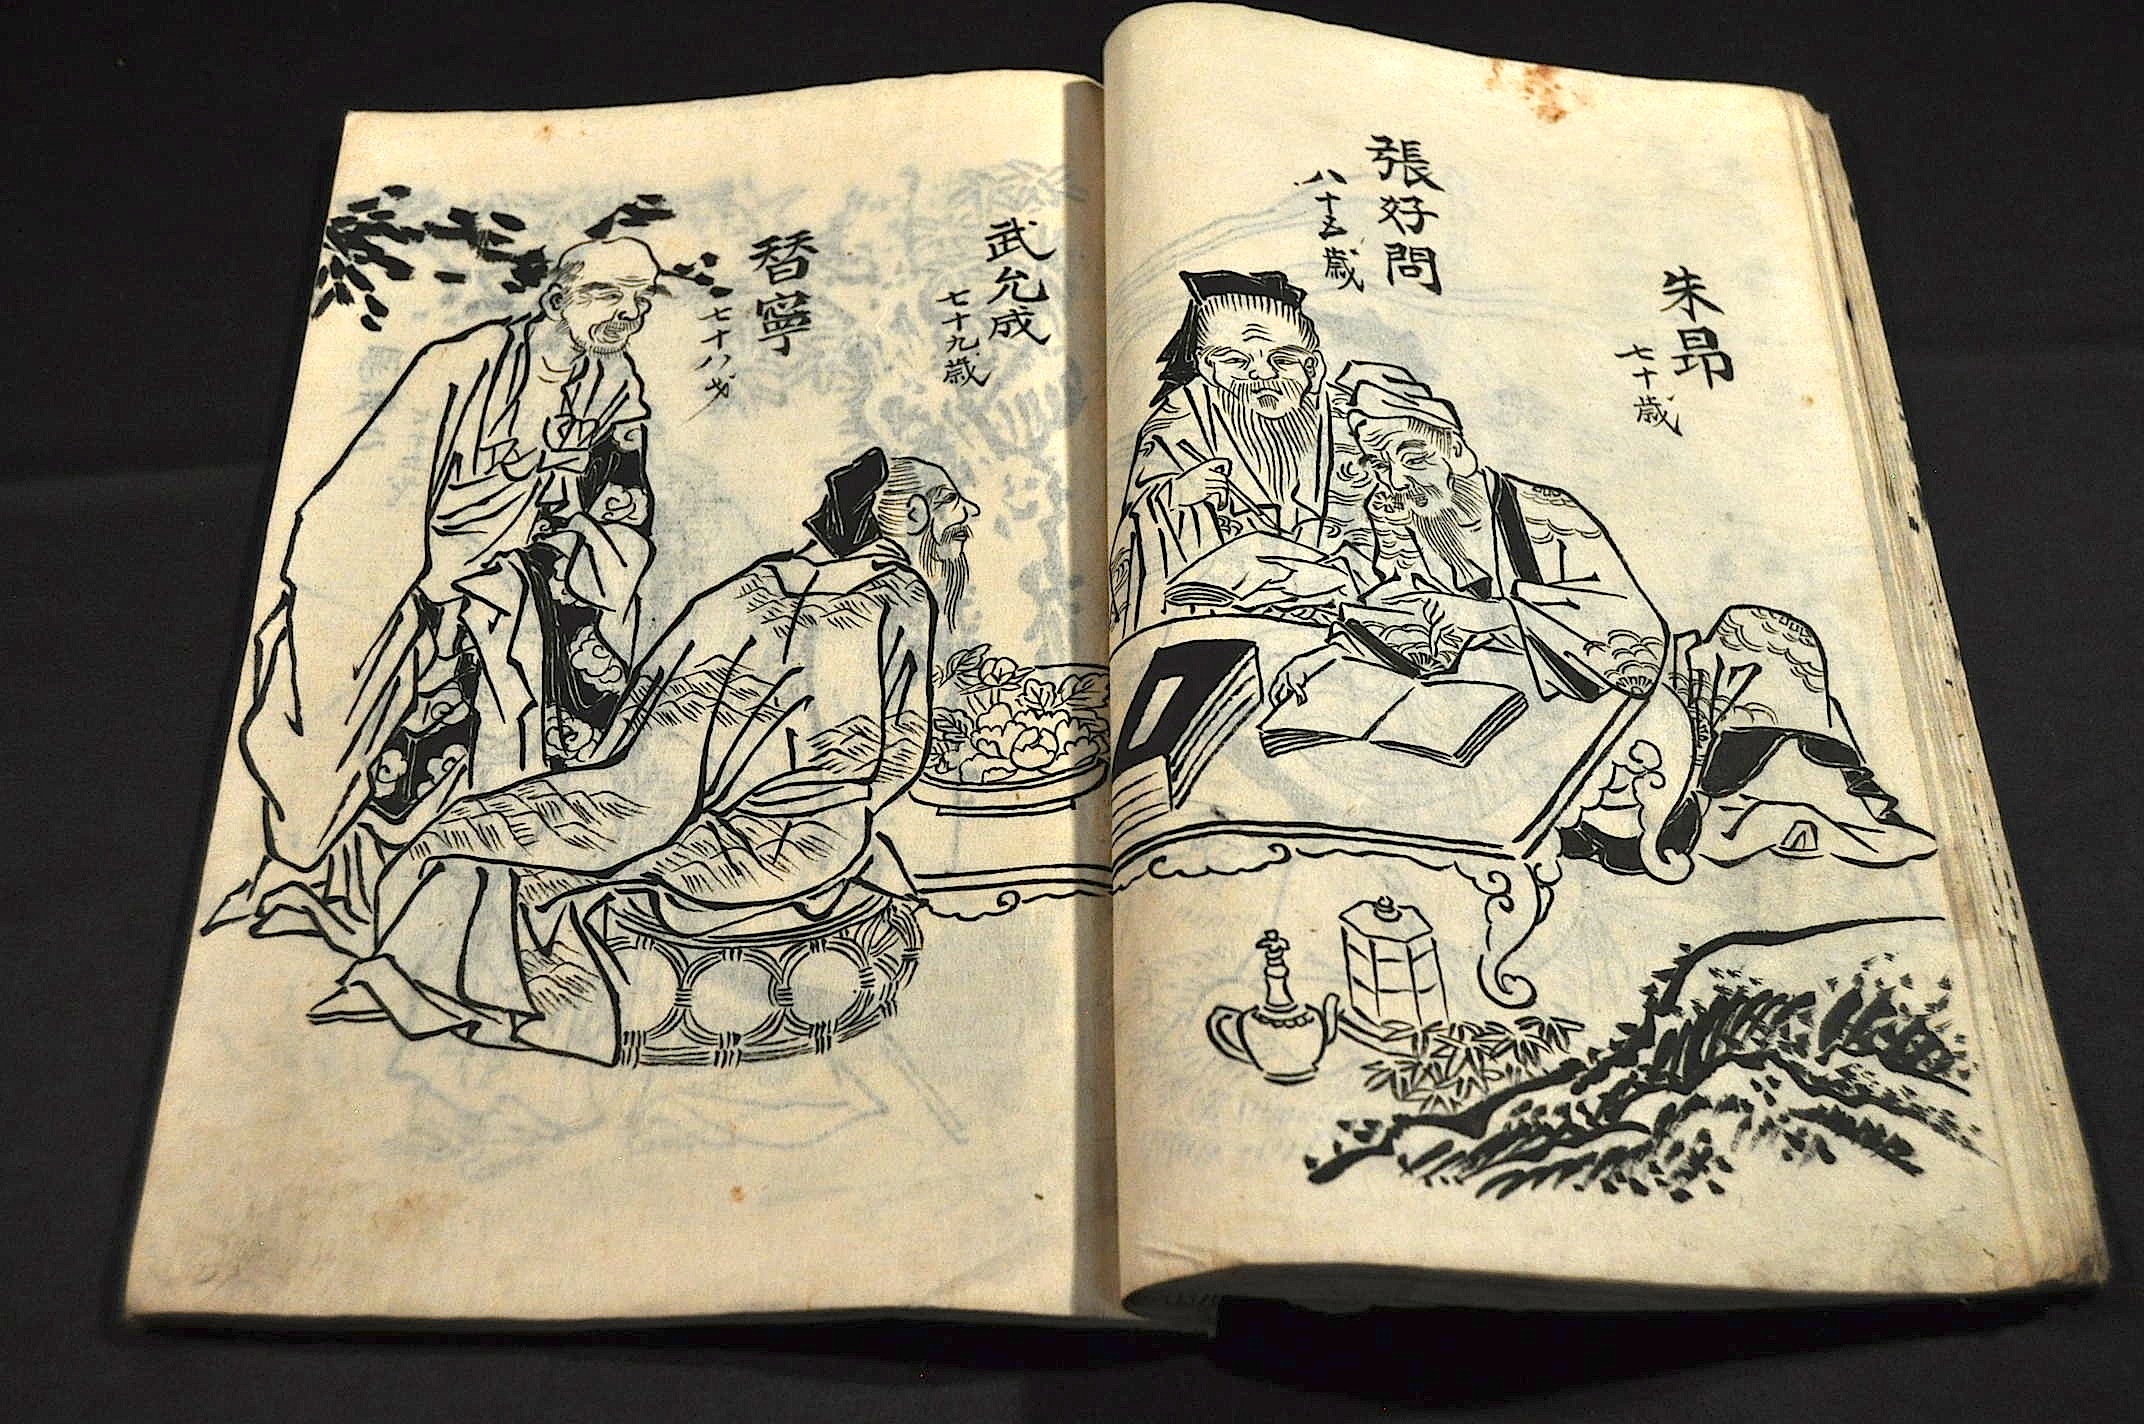 朱昂
七十歳
張好問
八十五歳
武允成
七十九歳
替寧
七十八才